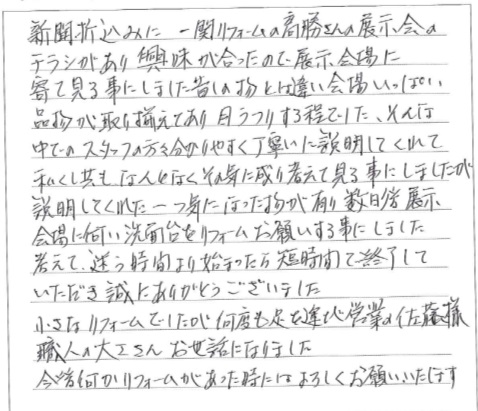 新聞折込みに 一関リフォームの高勝さんの展示会の
チラシがあり興味が合ったので展示会場に
寄て見る事にしました昔しの物とは違い会場いっぱい
品物が取り揃えてあり目うつりする程でした、そんな
中でのスタッフの方々分りやすく丁寧に説明してくれて
私くし共もなんとなくその気に成り考えて見る事にしましたが
説明してくれた一つ気になった物が有り数日後展示
会場に伺い洗面台をリフォームお願いする事にしました
考えて、迷う時間より始まったら短時間で終了して
いただき誠にありがとうございました
小さなリフォームでしたが何度も足を運び営業の佐藤様
職人の大工さんお世話になりました
今後何かリフォームがあった時にはよろしくお願いいたします